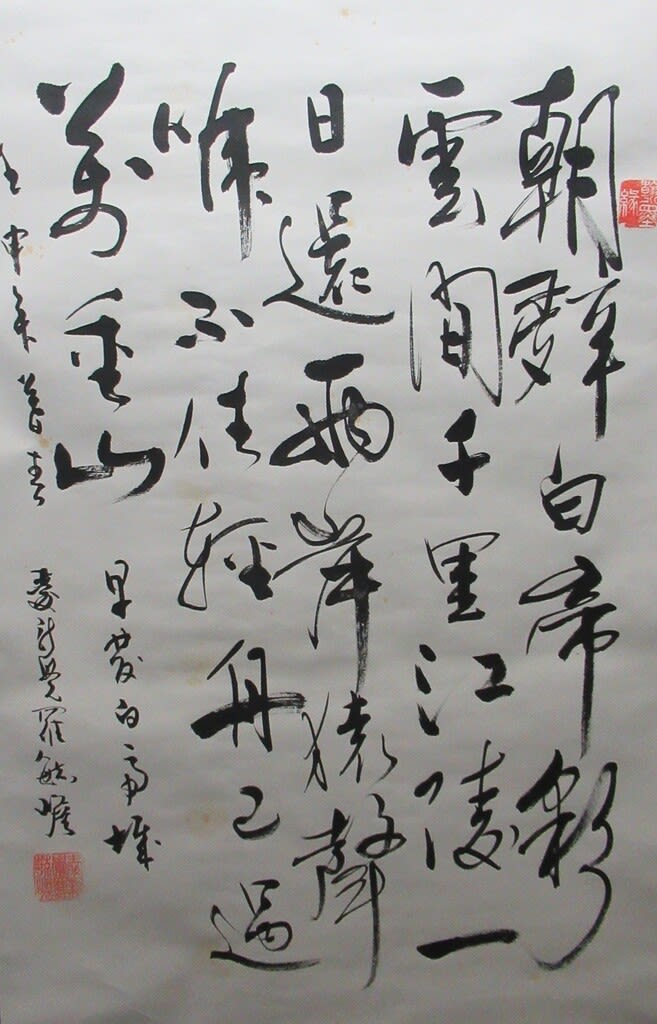 朝辭白帝彩
雲間千里江陵一
日還兩岸猿聲
啼不住輕舟已過
萬重山
早發白帝城
壬申年暮春
愛新覺羅毓嶦
翰墨緣